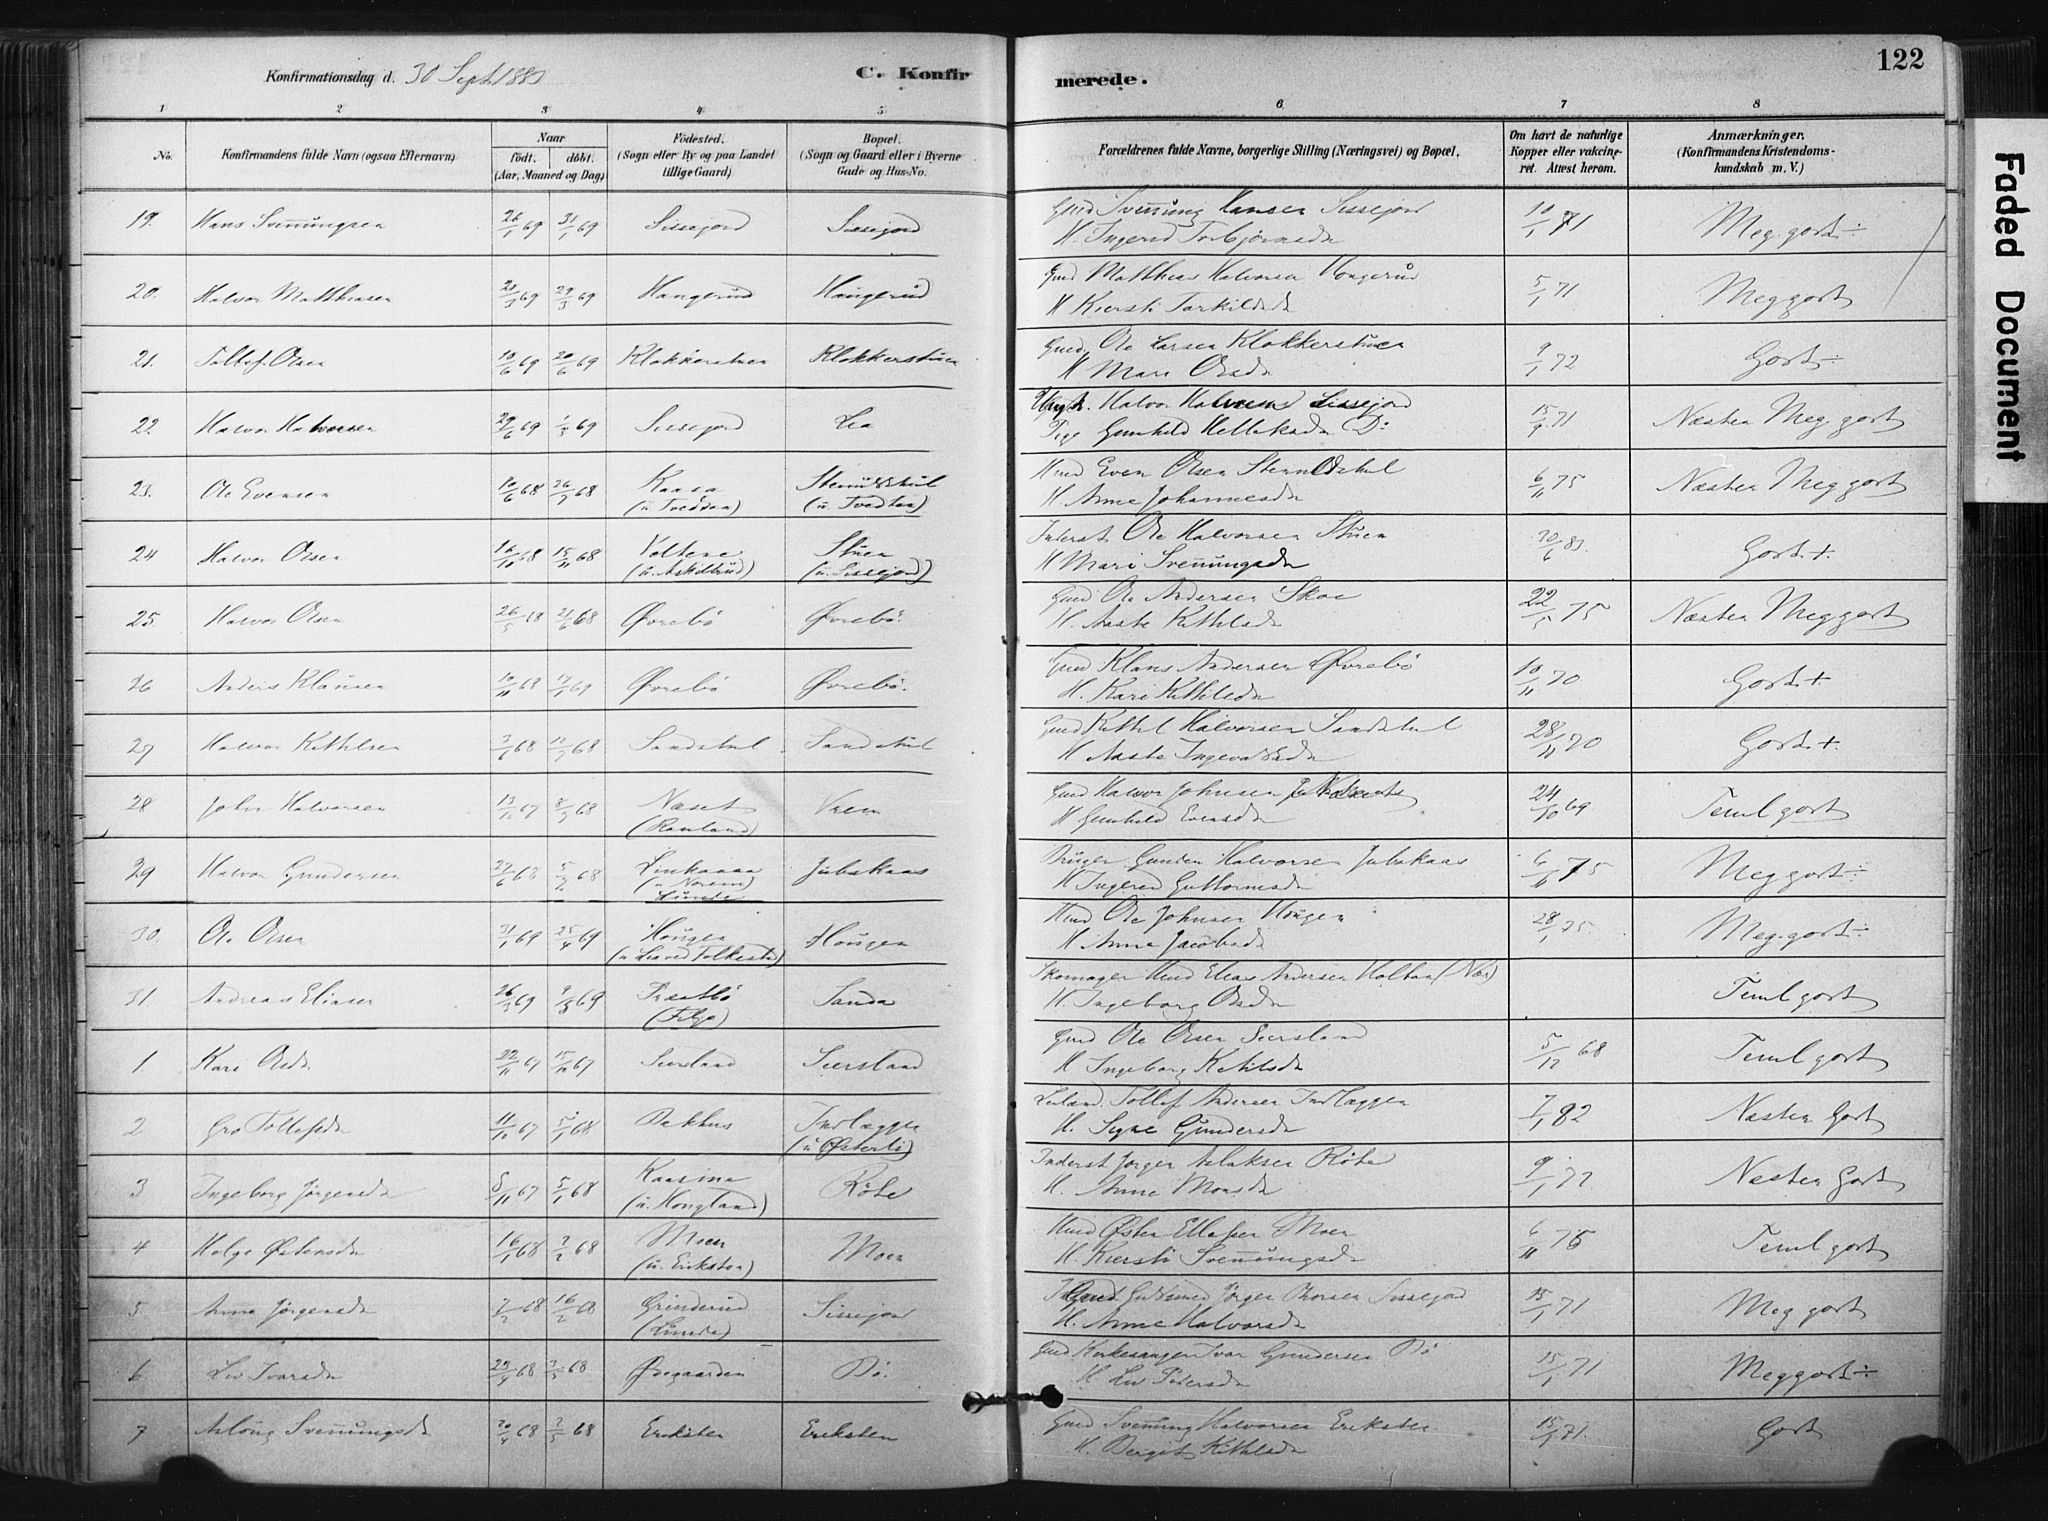 122
Konfirmationsdag d. 30 Sept. 1883
C. Konfirmerede.
1 2 3 4 5 6. 7 8
No.
Konfirmandens fulde Navn (ogsaa Efternavn)
Naar
født. døbt.
(Aar, Maaned og Dag)
Fødested.
(Sogn eller By og paa Landet
tillige Gaard)
Bopæl.
(Sogn og Gaard eller i Byerne
Gade og Hus-No.
Forældrenes fulde Navne, borgerlige Stilling (Næringsvei) og Bopæl.
Om havt de naturlige
Kopper eller vakcine-
ret. Attest herom.
Anmærkninger.
(Konfirmandens Kristendoms-
kundskab m. V.)
19. Hans Svennungsen 26/1 69 31/1 69 Sissejord Sissejord
Gmd Svennung Hansen Sissejord 10/1 71 Meg. godt ÷
H. Ingerid Torbjørnsd
20. Halvor Matthiasen 21/3 69 29/3 69 Haugerud Haugerud
Gmd Matthias Halvorsen Haugerud 5/1 71 Meg godt
H Kiersti Tarkildsd
21. Tollef Olsen 10/6 69 20/6 69 Klokkerstuen Klokkerstuen
Gmd. Ole Larsen Klokkerstuen 9/1 72 Godt ÷
H Mari Olsd
22. Halvor Halvorsen 29/6 69 69 Sissejord Lia
Halvor Halvorsen Sissejord 15/9 71 Næsten Meg. godt
Pige Gunhild Helleksd Do
23. Ole Evensen 10/6 68 26/7 68 Kaasa
(u. Tvedten) (u. Tvedten)
Hmd Even Olsen 6/11 75 Næsten Meg godt
H. Anne Johannesd
24 Halvor Olsen 16/10 68 15/11 68 Stuen
(u. Askildbrud) (u. Sissejord)
Inderst Ole Halvorsen Stuen 30/6 83. Godt +
H Mari Svennungsd
25. Halvor Olsen 26/5 68 21/6 68 Øvrebø Øvrebø.
Gmd Ole Andersen Skoe 22/5 75 Næsten Meg godt
H. Aaste Kittilsd
26 Anders Klausen 10/11 68 17/1 69 Øvrebø Øvrebø.
Gmd Klaus Andersen Øvrebø 10/11 70 Godt +
H. Kari Kittilsd
27 Halvor Kittilsen 3/1 68 12/2 68 Sandstul Sandstul
Gmd Kittil Halvorsen Sandstul 28/11 70 Godt +
H Aaste Ingevaldsd
28 John Halvorsen 13/12 67 8/3 68 Næset Vreim
(Rauland)
Gmd Halvor Johnsen 24/10 69 Teml godt
H Gunhild Evensd
29 Halvor Gundersen 68 68 Jubskaas
(u Norem)
Lunde
Bruger Gunder Halvorsen Jubskaas 6/11 75 Meg godt ÷
H Ingered Guttormsd
30. Ole Olsen 31/1 69 25/4 69 Hougen Hougen
Hmd Ole Johnsen Hougen 28/1 75 Meg. godt ÷
H Anne Jacobsd
31. Andreas Eliasen 26/3 69 9/5 69 Præstbø Sanda
Skomager Hmd Elias Andersen Holtan Teml godt
H. Ingeborg Olsd
1 Kari Olsd 22/11 67 15/12 67 Seersland Seersland
Gmd Ole Olsen Seersland 5/12 68 Teml godt
H Ingeborg Ketilsd
2 Gro Tollefsd 11/12 67 5/1 68 Bakhus Indlæggen
(u Østerli)
Tollef Andersen Indlæggen 7/1 82 Næsten Godt
H. Signe Gundersd
3 Ingeborg Jørgensd 8/11 67 5/1 68 Kaasine Røte
(u. Hougland)
Inderst Jørgen Aslaksen Røte 9/1 72 Næsten Godt
H. Anne Monsd
4 Helge Østensd 16/1 68 2/2 68 Moen Moen
(u. Eriksten)
Hmd Østen Ellefsen Moen 6/11 75 Teml godt
H. Kiersti Svennungsd
5 Anne Jørgensd 2/2 68 16/2 68 Grinderud Sissejord
(Lunde)
Jørgen Thorsen Sissejord 15/1 71 Meg godt
H. Anne Halvorsd
6 Liv Ivarsd 68 3/5 68 Ødegaarden Bø.
Gmd Kirkesanger Ivar Gundersen Bø 15/1 71 Meg godt ÷
H Liv Pedersd
7 Aslaug Svennungsd 20/4 68 3/5 68 Eriksten Eriksten
Gmd Svennung Halvorsen Eriksten 15/1 71. Godt
H. Bergit Kittilsd
Faded Document